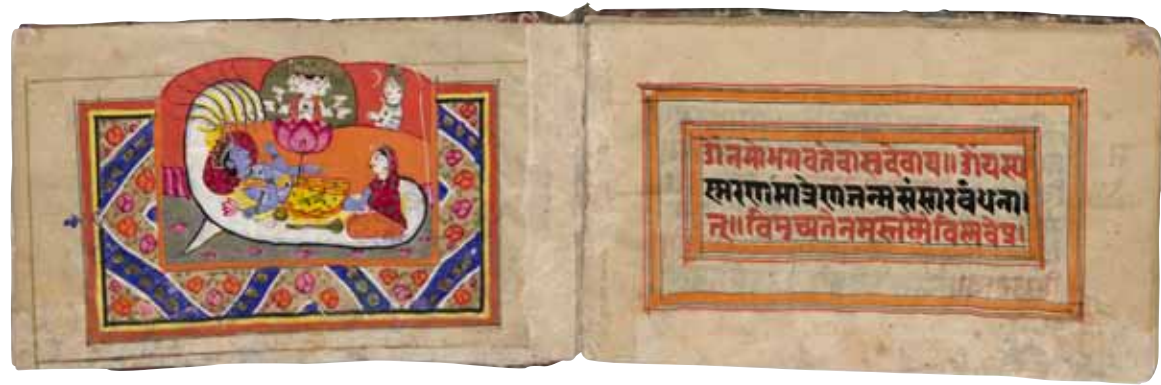 ॐ नमो भगवते वासुदेवाय॥ ॐ यस्य
स्मरणमात्रेण जन्मसंसारबंधना।
त्॥ विमुच्यते नमस्तस्मै विष्णवे प्र।